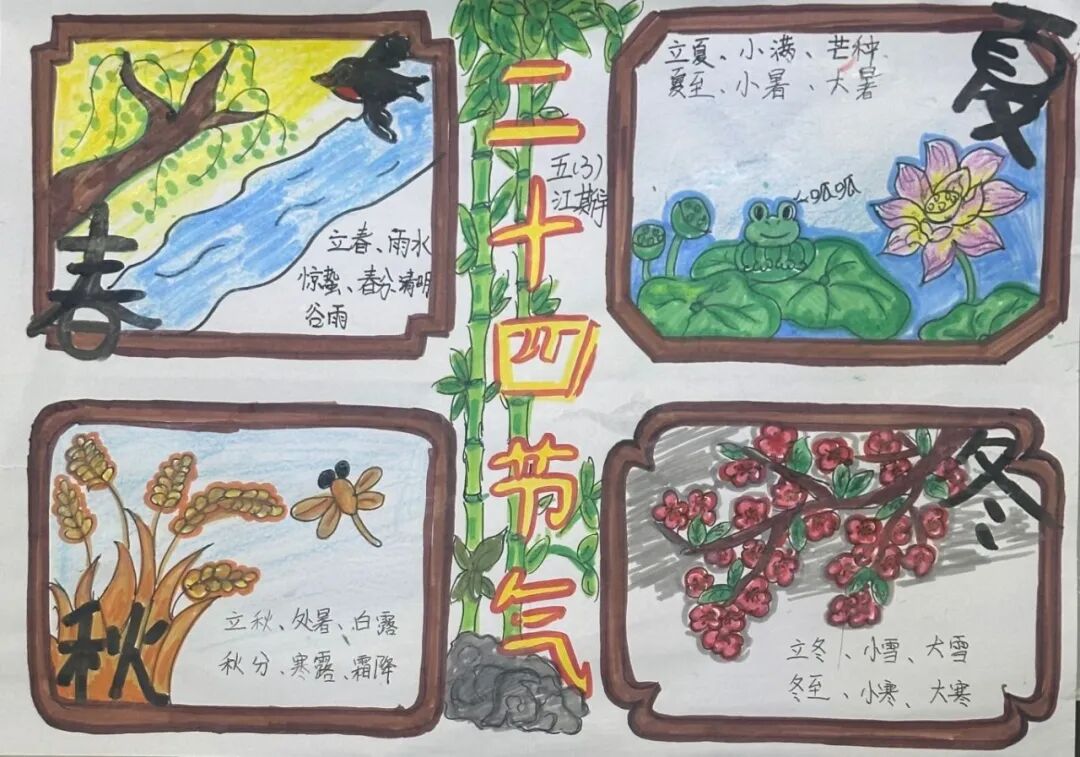 春
立春、雨水
惊蛰、春分、清明
谷雨
二十四节气
五(3)
夏
立夏、小满、芒种
夏至、小暑、大暑
呱呱
秋
立秋、处暑、白露
秋分、寒露、霜降
冬
立冬、小雪、大雪
冬至、小寒、大寒